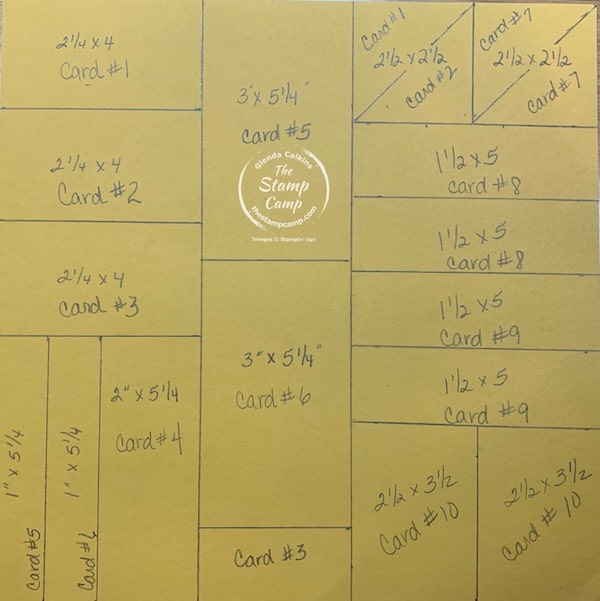 2 1/4 x 4
Card #1
2 1/4 x 4
Card #2
2 1/4 x 4
Card #3
1" x 5 1/4
Card #5
1" x 5 1/4
Card #6
2" x 5 1/4
Card #4
3" x 5 1/4"
Card #5
Glenda Calkins
The
Stamp
Camp
thestampcamp.com
Images © Stampin' Up!
3" x 5 1/4"
Card #6
Card #3
Card #1
2 1/2 x 2 1/2
Card #2
Card #7
2 1/2 x 2 1/2
Card #7
1 1/2 x 5
Card #8
1 1/2 x 5
Card #8
1 1/2 x 5
Card #9
1 1/2 x 5
Card #9
2 1/2 x 3 1/2
Card #10
2 1/2 x 3 1/2
Card # 10